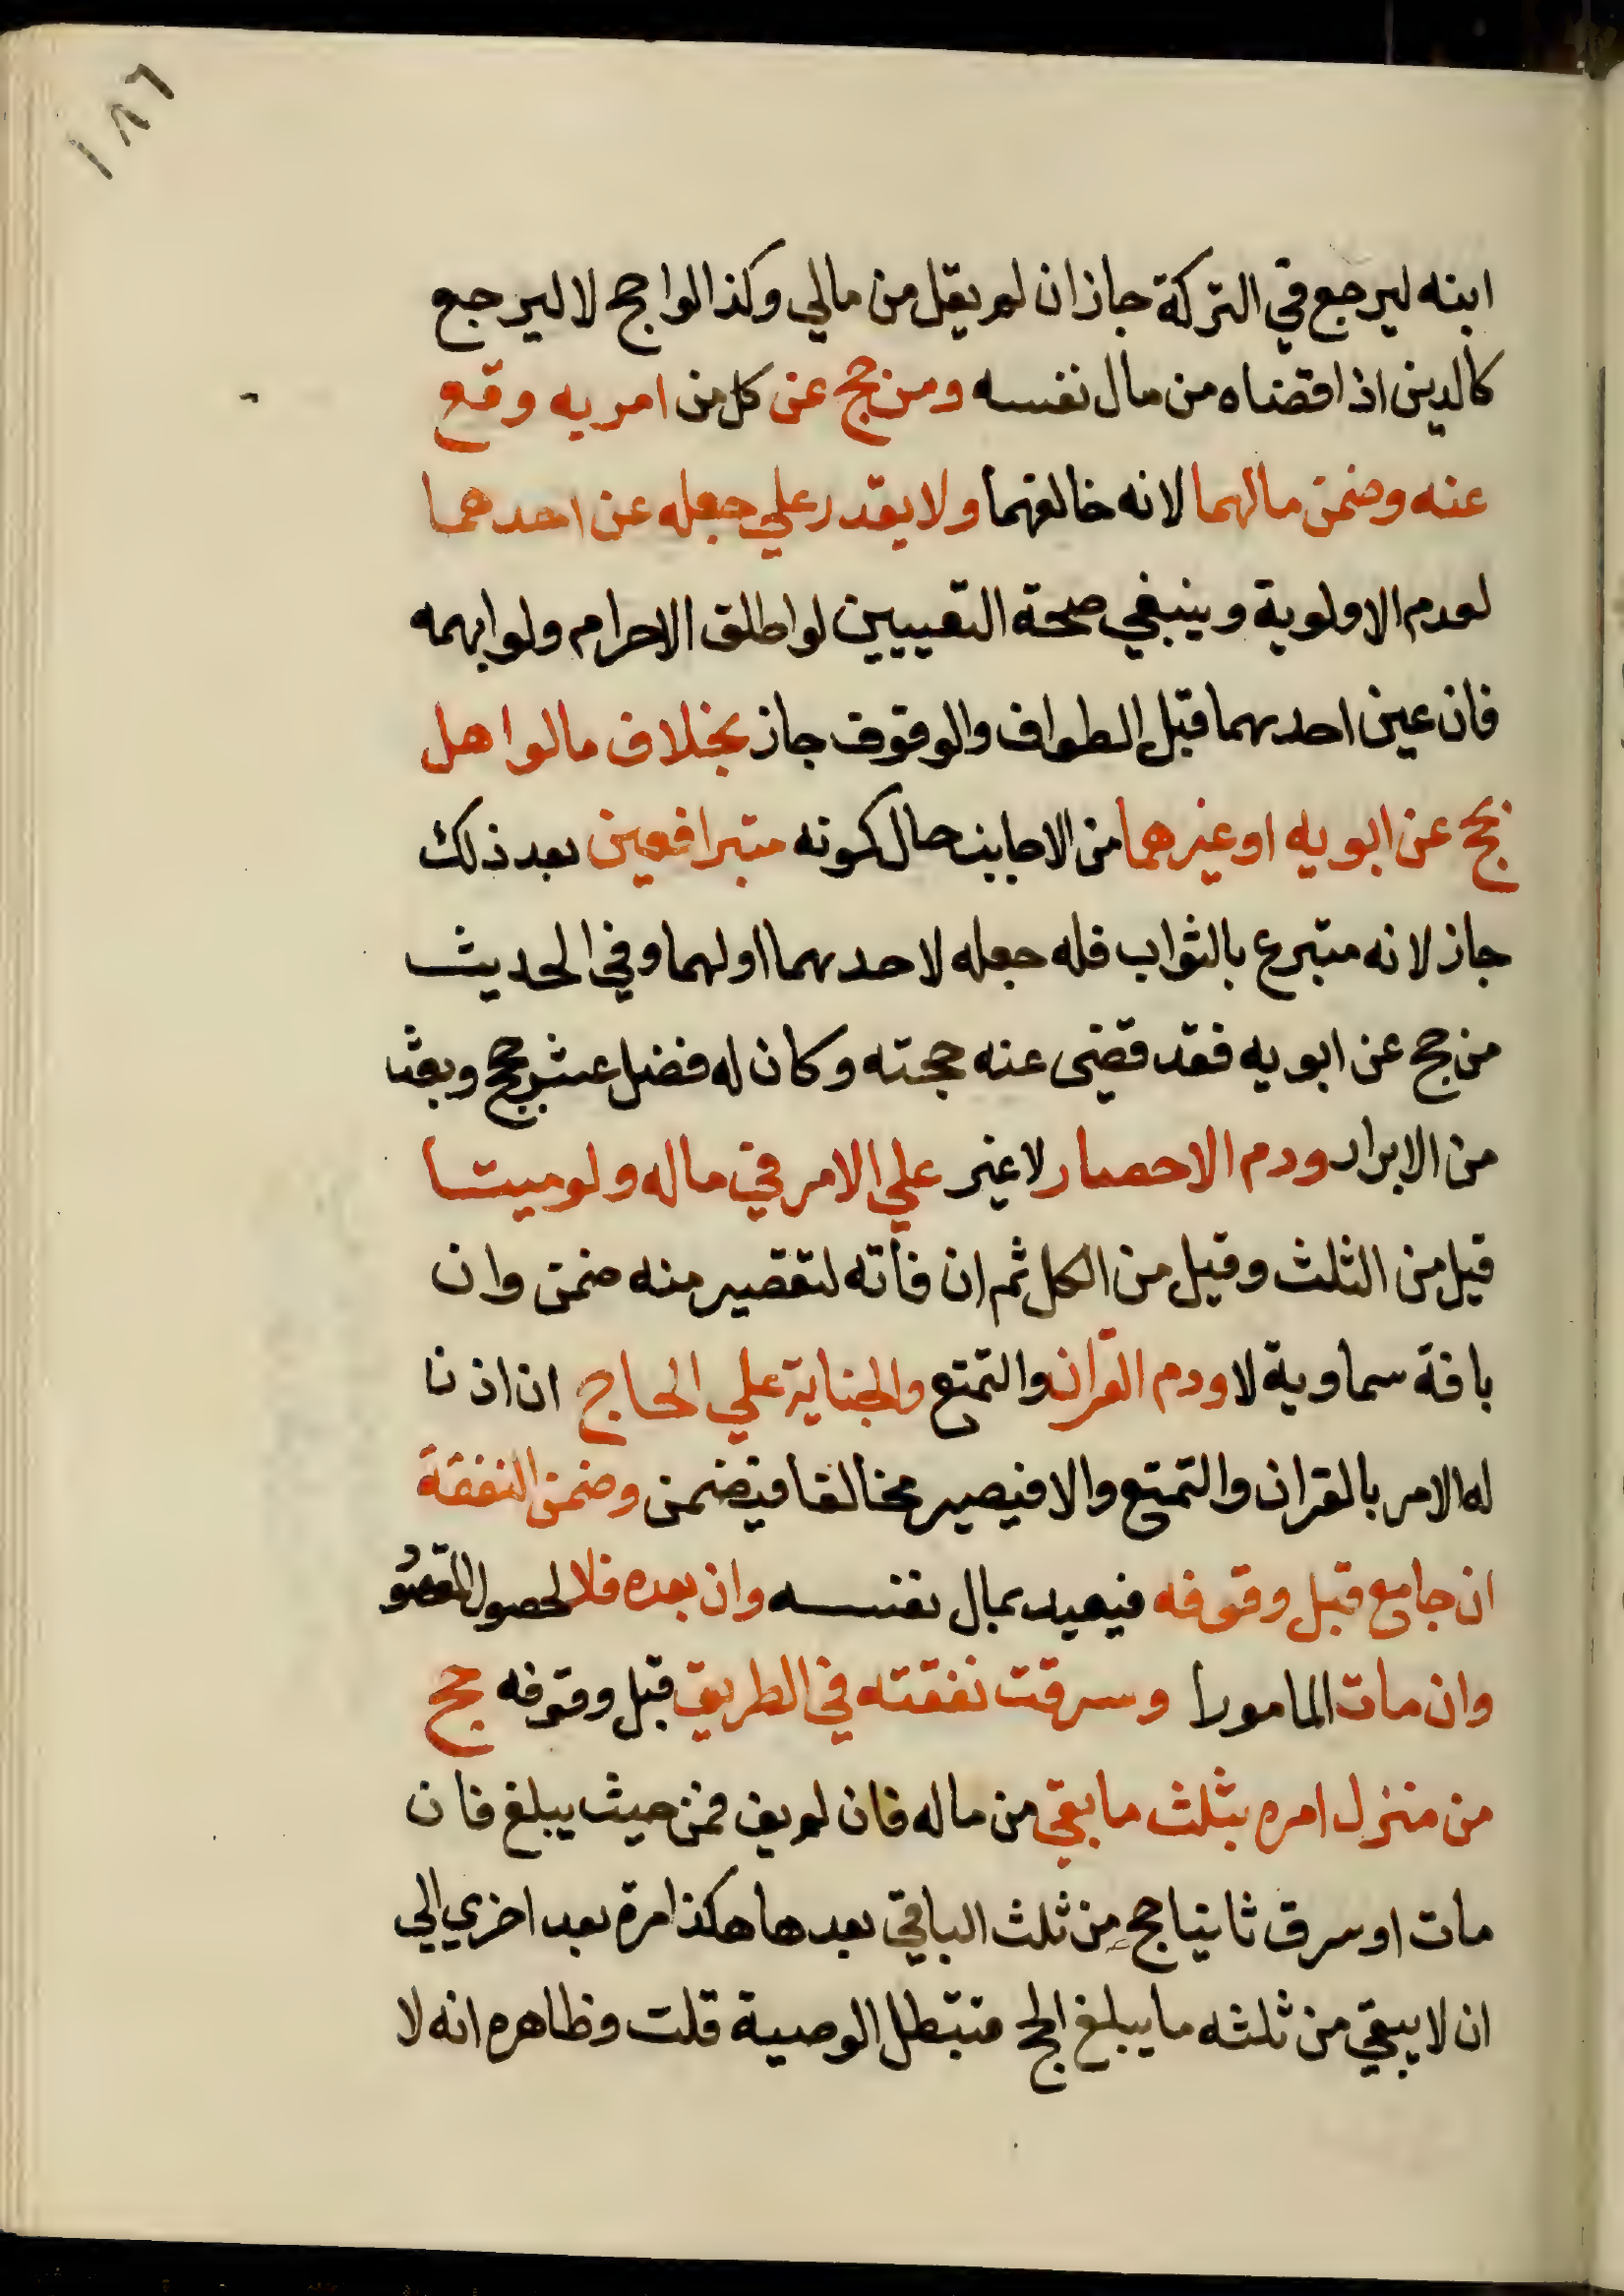 ١٨٦
ابنه ليرجع في التركة جاز ان لم يقل من مالي وكذا لو احج لا ليرجع
كالدين اذا قضاه من مال نفسه ومن حج عن كل من امريه وقع
عنه وضمن مالهما لانه خالفهما ولا يقدر علي جعله عن احدهما
لعدم الاولوية وينبغي صحة التعيين لو اطلق الاحرام ولو ابهمه
فان عين احدهما قبل الطواف والوقوف جاز بخلاف مالو اهل
بحج عن ابويه او غيرهما من الاجانب حال كونه متبرا فعين بعد ذلك
جاز لانه متبرع بالثواب فله جعله لاحدهما اولهما وفي الحديث
من حج عن ابويه فقد قضى عنه حجته وكان له فضل عشر حج وبعث
من الابرار ودم الاحصار لا غير علي الامر في ماله ولو ميتا
قيل من الثلث وقيل من الكل ثم ان فاته لتقصير منه ضمن وان
بافة سماوية لا ودم القران والتمتع والجناية علي الحاج ان اذن
له الامر بالقران والتمتع والا فيصير مخالفا فيضمن وضمن النفقة
ان جامع قبل وقوفه فيعيد بمال نفسه وان بعده فلا لحصول المقصود
وان مات المامور ا وسرقت نفقته في الطريق قبل وقوفه حج
من منزل امره بثلث ما بقي من ماله فان لم يف فمن حيث يبلغ فان
مات او سرق ثانيا حج من ثلث الباقي بعدها هكذا مرة بعد اخري الي
ان لا يبقي من ثلثه ما يبلغ الحج فتبطل الوصية قلت وظاهره انه لا